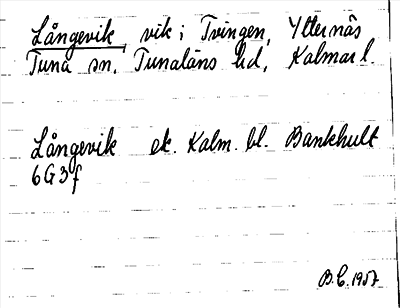 Långevik, vik i Tvingen, Ytternäs
Tuna sn, Tunaläns hd, Kalmar l.
Långevik ek. Kalm. bl. Bankhult
6G3f
B.C. 1957